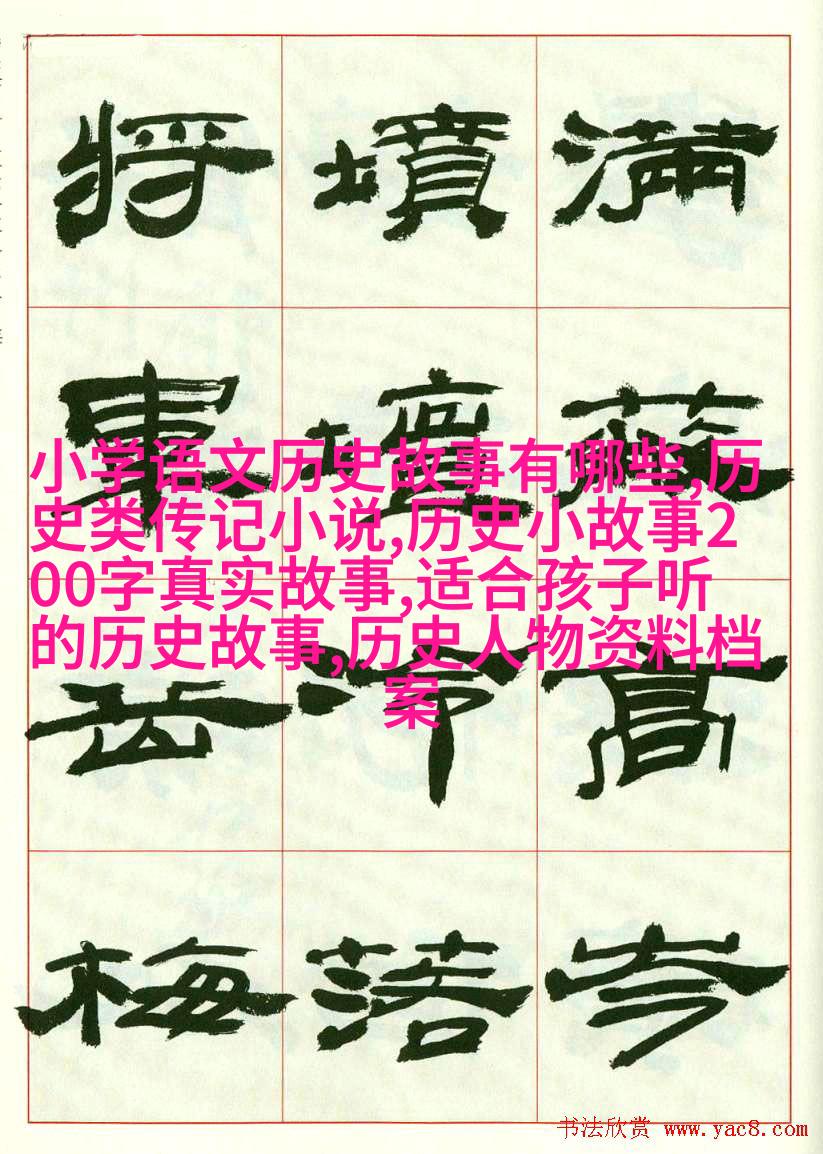 滿蔽高岑
墳壇冷落
將軍岳梅
小学语文历史故事有哪些,历
史类传记小说,历史小故事2
00字真实故事,适合孩子听
的历史故事,历史人物资料档
案
书法欣赏 www.yac8.com